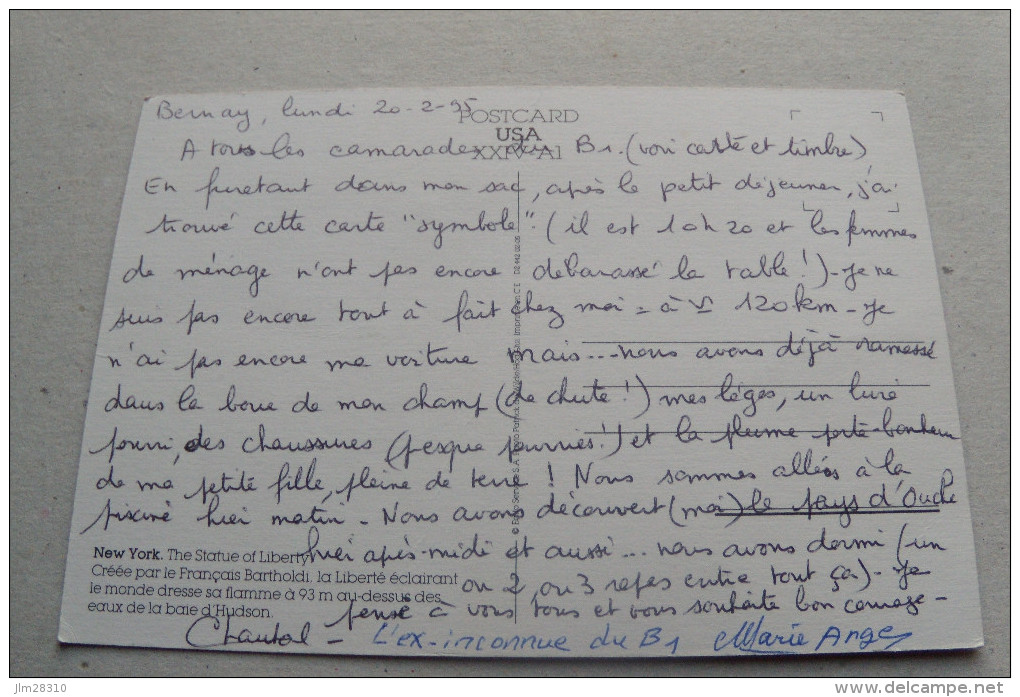 Bernay, lundi 20-2-95
POSTCARD
USA
XXIV-A1
A tous les camarades du B1. (voir carte et timbre)
En furetant dans mon sac, après le petit déjeuner, j'ai
trouvé cette carte "symbole". (il est 10h20 et les femmes
de ménage n'ont pas encore débarassé la table!) - Je ne
suis pas encore tout à fait chez moi = à 120km - Je
n'ai pas encore ma voiture mais... nous avons déjà ramassé
dans la boue de mon champ (de chute!) mes lèges, un livre
pourri, des chaussures (presque pourries!) et la plume porte-bonheur
de ma petite fille, pleine de terre! Nous sommes allées à la
piscine hier matin - Nous avons découvert (moi) le pays d'Ouche
hier après-midi et aussi... nous avons dormi (un
ou 2 ou 3 repas entre tout ça) - Je
pense à vous tous et vous souhaite bon courage -
Chantal - L'ex-inconnue du B1 Marie Ange
New York. The Statue of Liberty
Créée par le Français Bartholdi, la Liberté éclairant
le monde dresse sa flamme à 93 m au-dessus des
eaux de la baie d'Hudson.
jlm28310
www.delcampe.net